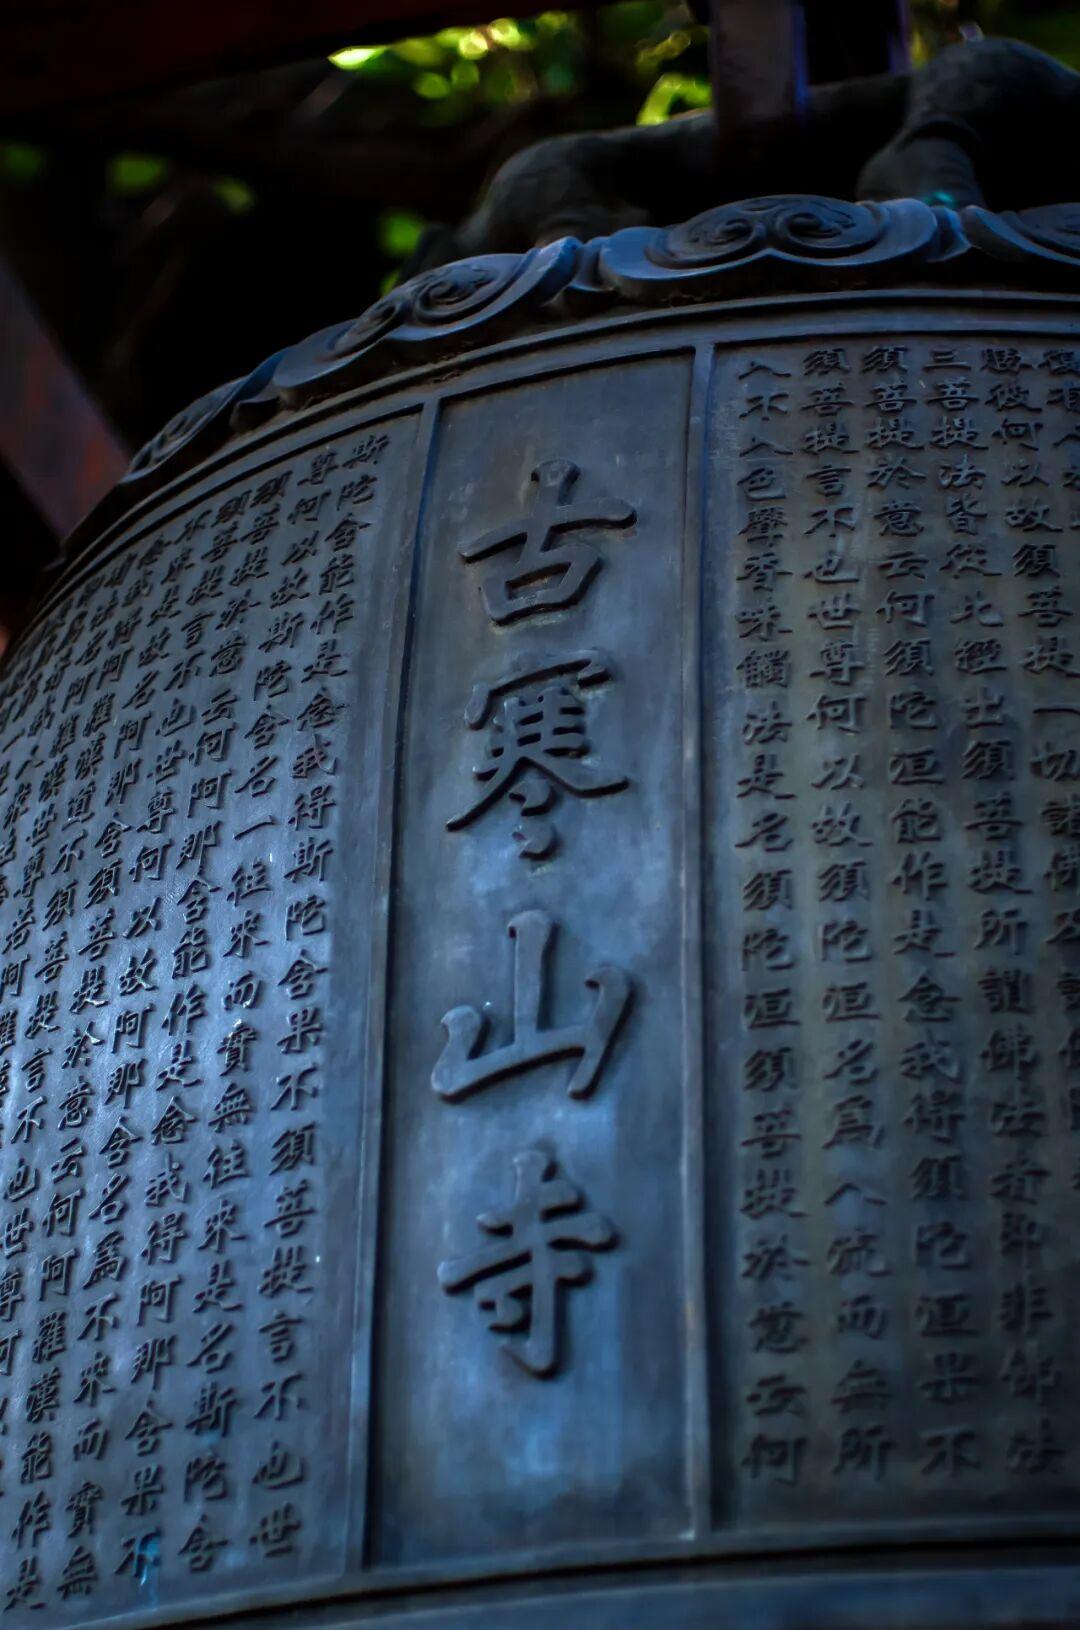 勝彼何以故須菩提一切諸佛及諸佛
三菩提法皆從此經出須菩提所謂佛法者即非佛法
須菩提於意云何須陀洹能作是念我得須陀洹果不
須菩提言不也世尊何以故須陀洹名為入流而無所
入不入色聲香味觸法是名須陀洹須菩提於意云何
古寒山寺
斯陀含能作是念我得斯陀含果不須菩提言不也世
尊何以故斯陀含名一往來而實無往來是名斯陀含
須菩提於意云何阿那含能作是念我得阿那含果不
須菩提言不也世尊何以故阿那含名為不來而實無
不來是故名阿那含須菩提於意云何阿羅漢能作是
念我得阿羅漢道不須菩提言不也世尊何以
法名阿羅漢世尊若阿羅漢